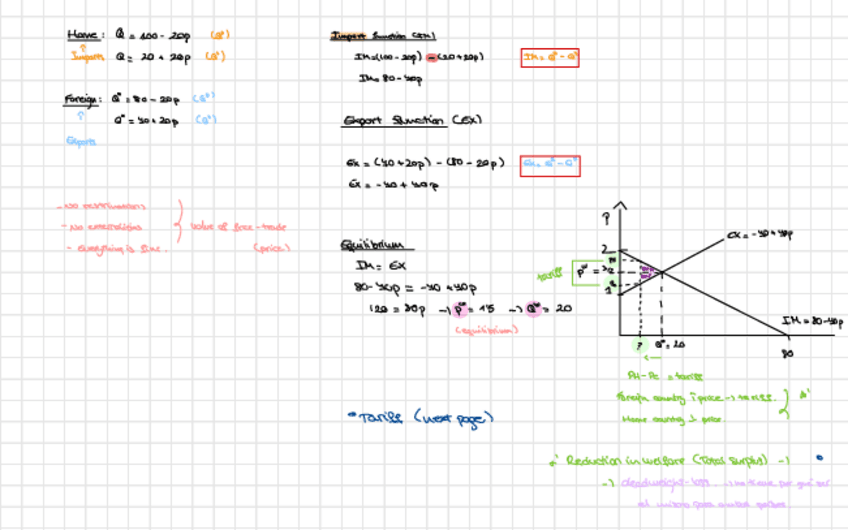 Home: Q = 100 - 20p (Qᴰ)
Imports Q = 20 + 20p (Qˢ)
Foreign: Q* = 80 - 20p (Qᴰ)
Q* = 40 + 20p (Qˢ)
Exports
- No restrictions
- No externalities
- everything is fine.
value of free-trade
(price)
Import function (IM)
IM = (100 - 20p) - (20 + 20p)
IM = Qᴰ - Qˢ
IM = 80 - 40p
Export function (EX)
EX = (40 + 20p) - (80 - 20p)
EX = Qˢ - Qᴰ
EX = -40 + 40p
Equilibrium
IM = EX
80 - 40p = -40 + 40p
120 = 80p → pʷ = 1'5 → Qʷ = 20
(equilibrium)
• Tariffs (next page)
P
EX = -40 + 40p
2
tariff
pʷ =
1
IM = 80 - 40p
? Qʷ = 20
80
= tariff
Foreign country ↑ price → tariff.
Home country ↓ price
Reduction in welfare (Total surplus) →
→ deadweight-loss